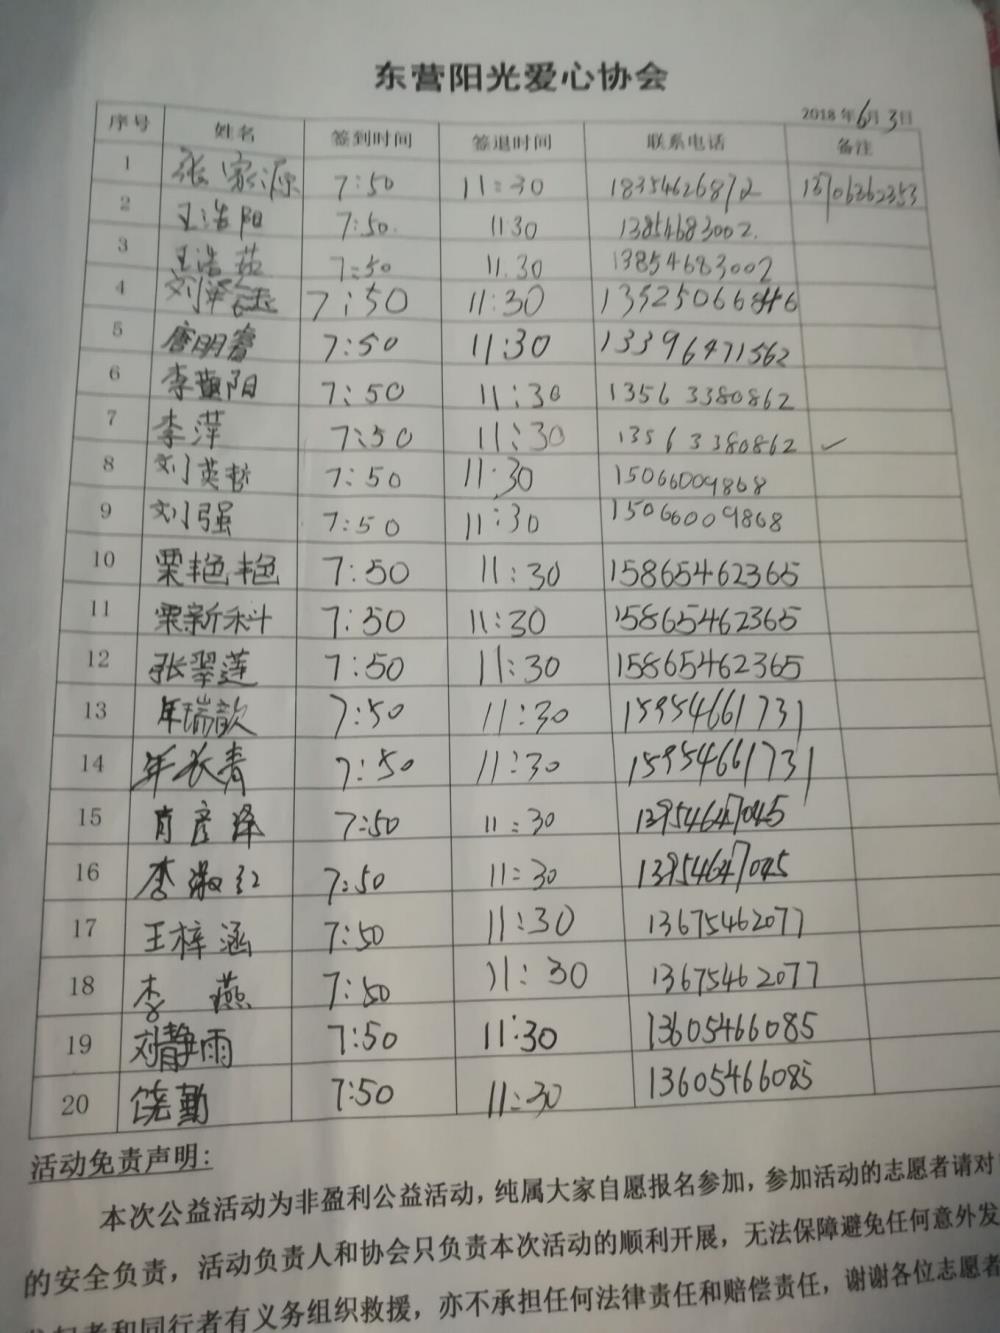 东营阳光爱心协会
2018年6月3日
序号 姓名 签到时间 签退时间 联系电话 备注
1 张家源 7:50 11:30 18354626872 13706362353
2 王浩阳 7:50. 11 30 13854683002.
3 王浩茹 7:50 11.30 13854683002
4 刘泽 7:50 11:30
5 唐明睿 7:50 11:30 13396471562
6 李 阳 7:50 11:30 13563380862
7 李萍 7:50 11:30 13563380862 ✓
8 刘英哲 7:50 11:30 15066009868
9 刘强 7:50 11:30 15066009868
10 栗艳艳 7:50 11:30 15865462365
11 栗新科 7:50 11:30 15865462365
12 张翠莲 7:50 11:30 15865462365
13 年瑞歆 7:50 11:30 15954661731
14 年长青 7:50 11:30 15954661731
15 肖彦泽 7:50 11:30 13954647045
16 李淑红 7:50 11:30 13954647045
17 王梓涵 7:50 11:30 13675462077
18 李燕 7:50 11:30 13675462077
19 刘静雨 7:50 11:30 13605466085
20 饶勤 7:50 11:30 13605466085
活动免责声明:
本次公益活动为非盈利公益活动，纯属大家自愿报名参加，参加活动的志愿者请对
的安全负责，活动负责人和协会只负责本次活动的顺利开展，无法保障避免任何意外发
起者和同行者有义务组织救援，亦不承担任何法律责任和赔偿责任，谢谢各位志愿者